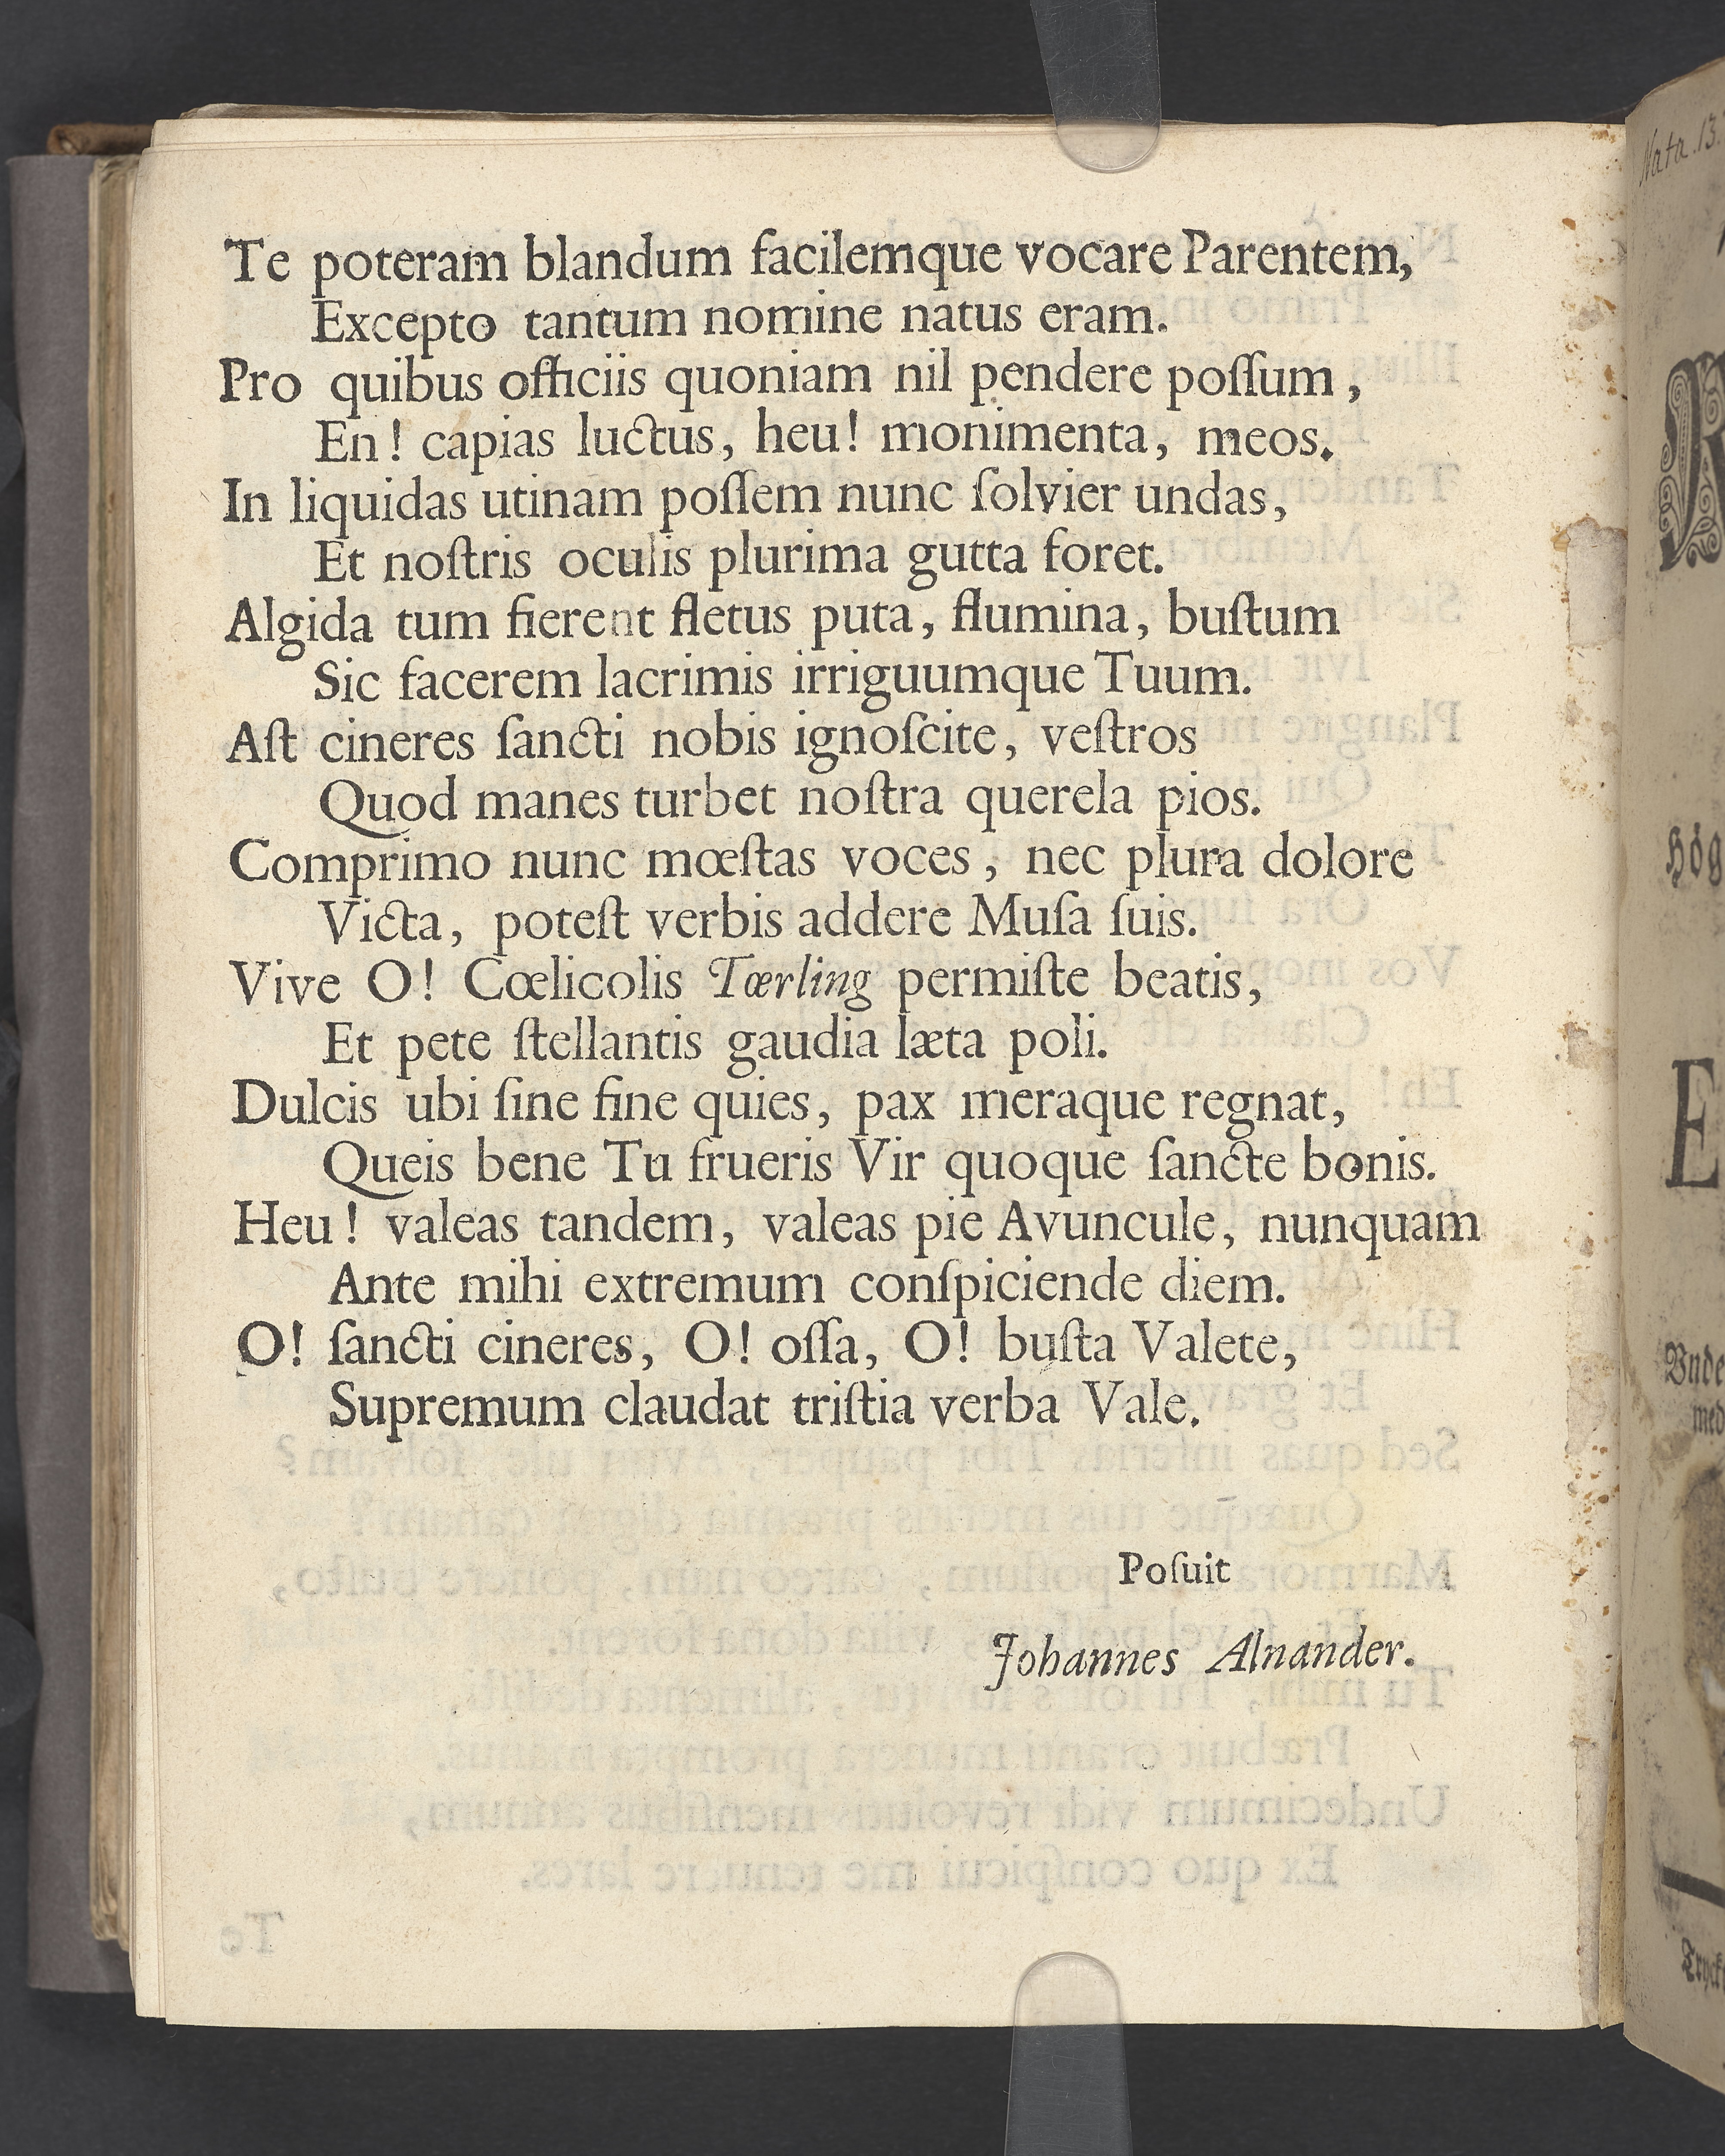 Te poteram blandum facilemque vocare Parentem,
Excepto tantum nomine natus eram.
Pro quibus officiis quoniam nil pendere poſſum,
En! capias luctus, heu! monimenta, meos.
In liquidas utinam poſſem nunc ſolvier undas,
Et noſtris oculis plurima gutta foret.
Algida tum fierent fletus puta, flumina, buſtum
Sic facerem lacrimis irriguumque Tuum.
Aſt cineres ſancti nobis ignoſcite, veſtros
Quod manes turbet noſtra querela pios.
Comprimo nunc mœſtas voces, nec plura dolore
Victa, poteſt verbis addere Muſa ſuis.
Vive O! Cœlicolis Tærling permiſte beatis,
Et pete ſtellantis gaudia læta poli.
Dulcis ubi ſine fine quies, pax meraque regnat,
Queis bene Tu frueris Vir quoque ſancte bonis.
Heu! valeas tandem, valeas pie Avuncule, nunquam
Ante mihi extremum conſpiciende diem.
O! ſancti cineres, O! oſſa, O! buſta Valete,
Supremum claudat triſtia verba Vale.
Poſuit
Johannes Alnander.
Nata. 13.